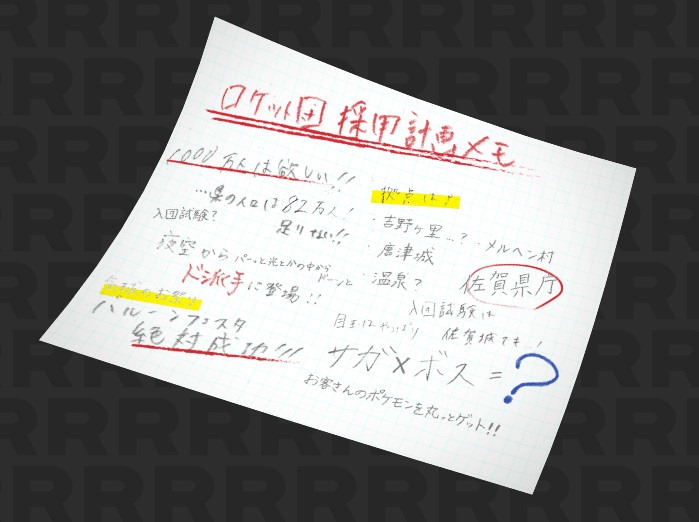 ロケット団 採用計画メモ
1000万人は欲しい!!
…県の人口は82万人!
足りない!!
入団試験?
夜空から パーッと光とかの中から ドーンと
ド派手に登場!!
バルーンフェスタ
絶対成功!!!
拠点は?
・吉野ヶ里…?
・メルヘン村
・唐津城
・温泉?
佐賀県庁
入団試験は
佐賀城でも…!
目玉はやっぱり
サカ゛×ボス=?
お客さんのポケモンを丸っとゲット!!